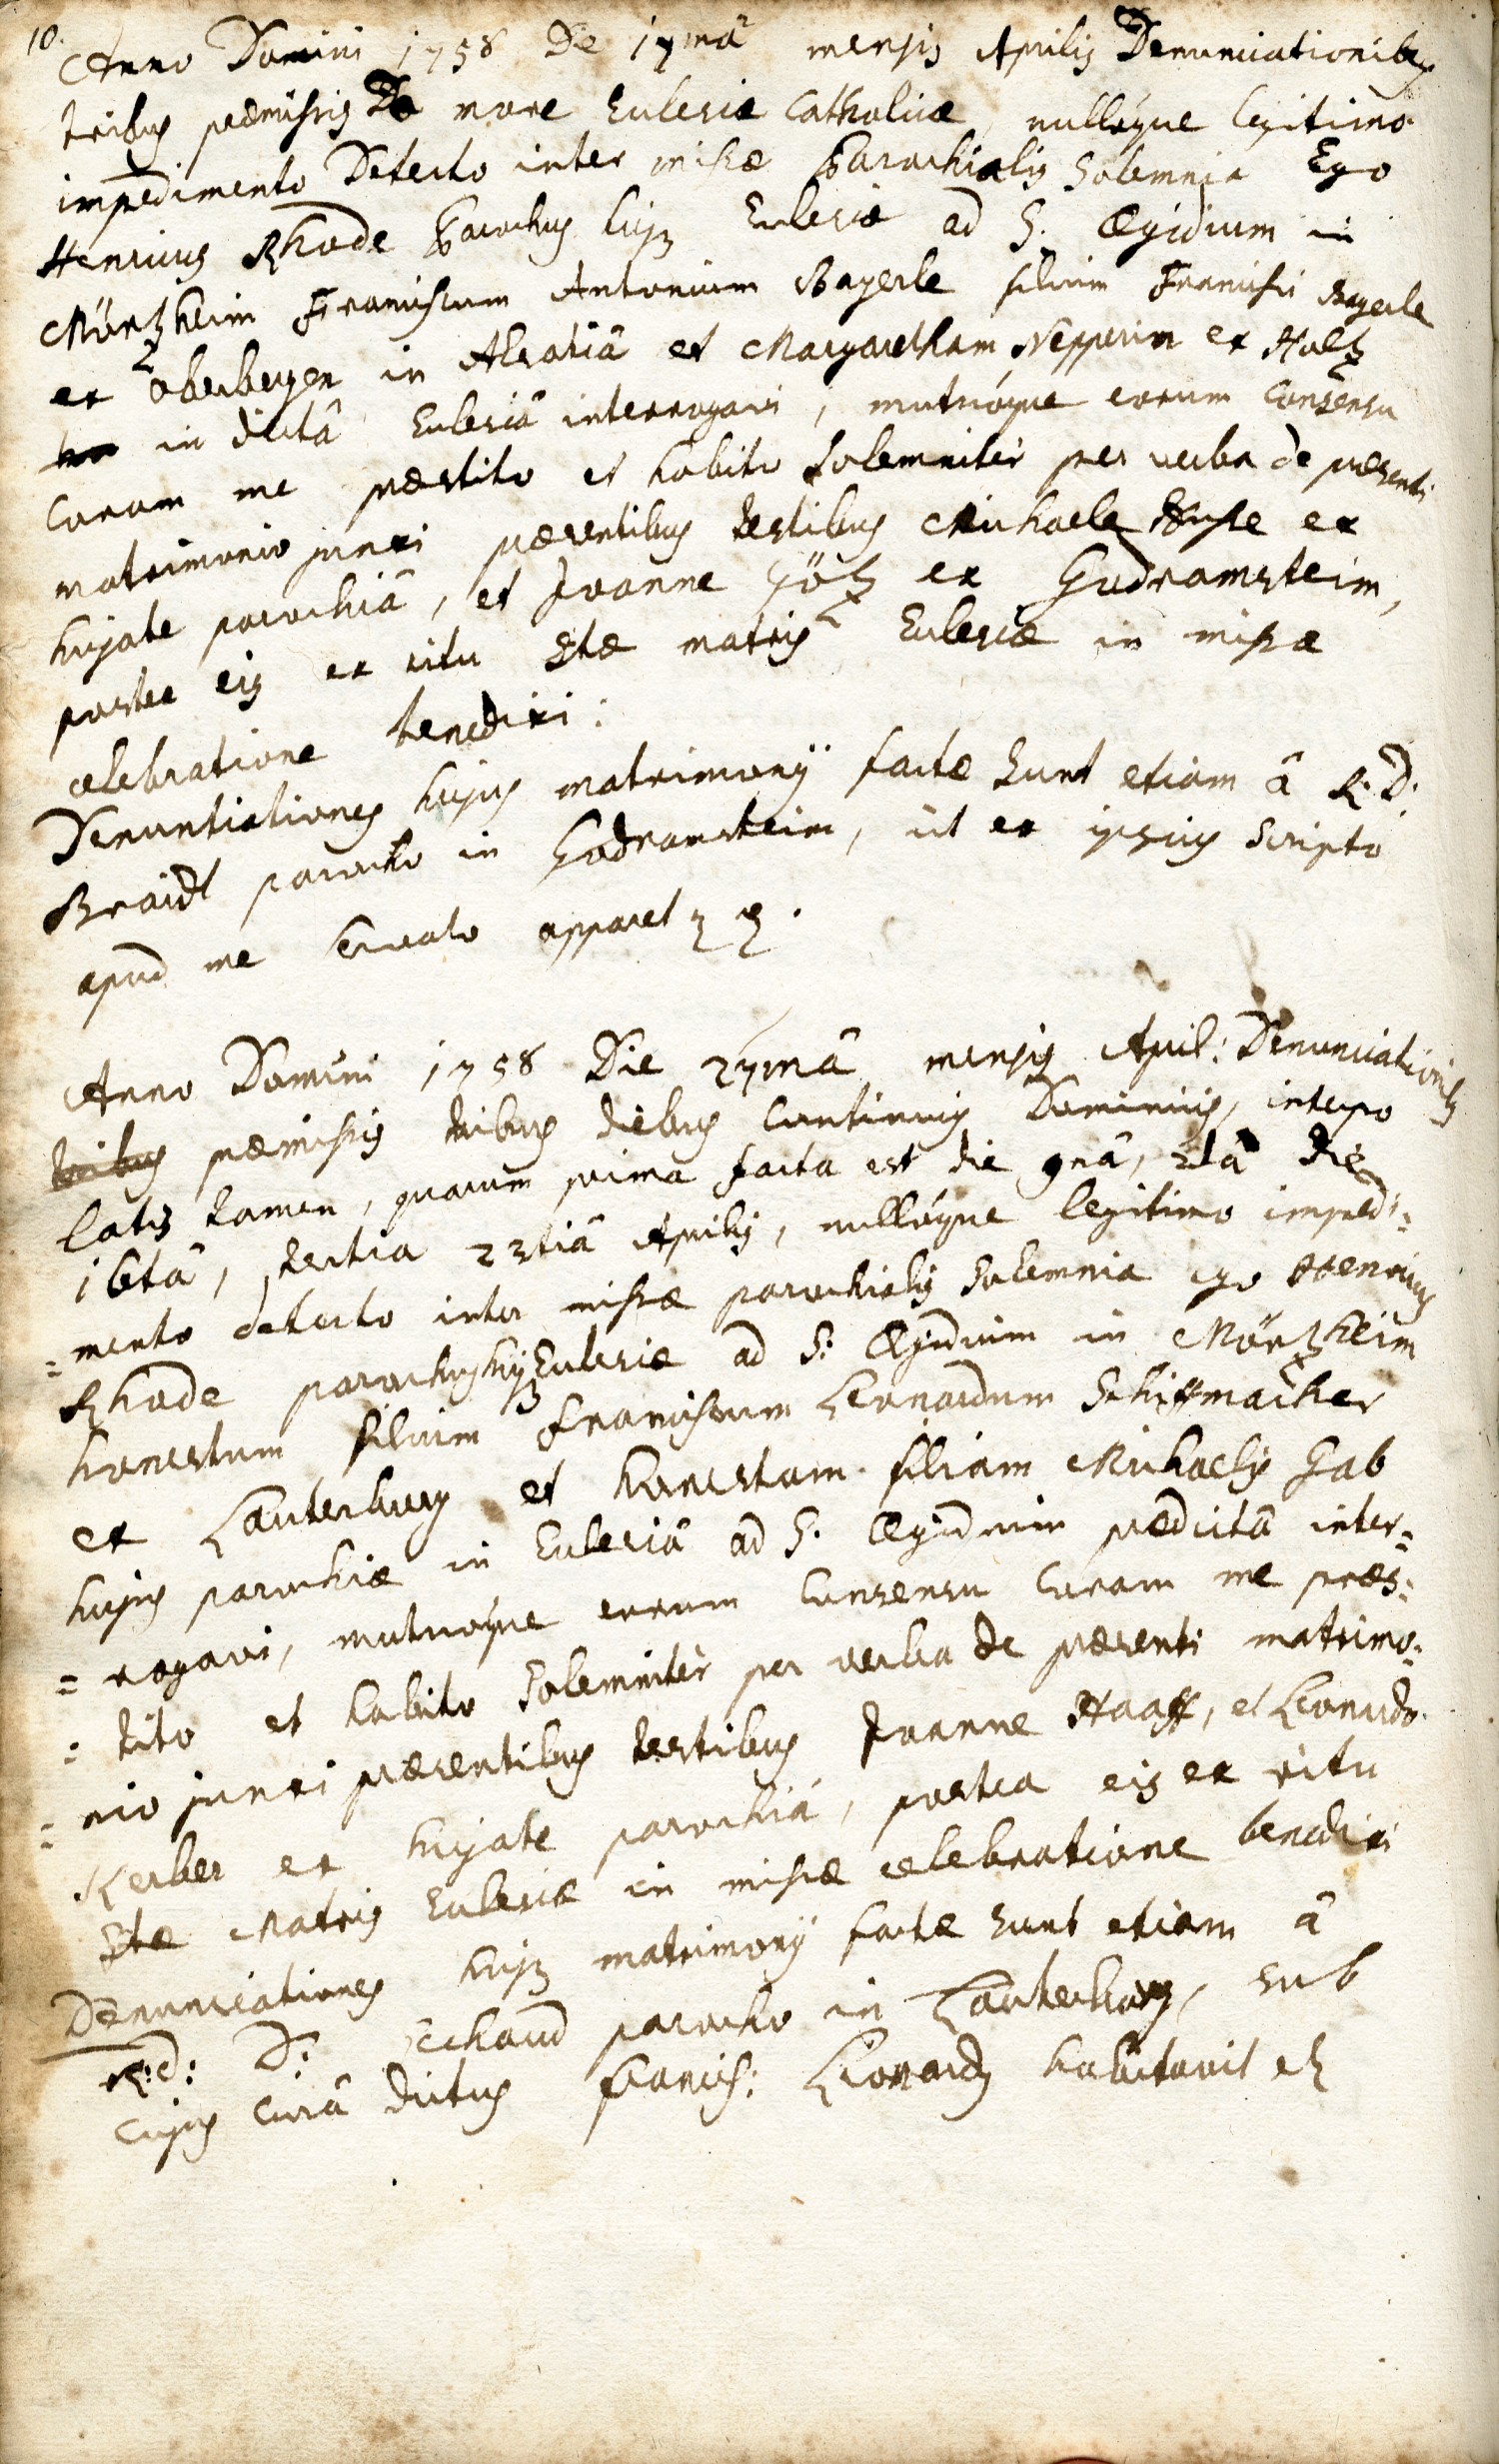 10.
Anno Domini 1758 De 17mâ mensis Aprilis Denunciationibus
tribus præmissis De more Eclesiæ Catholicæ, nullóque legitimo
impedimento Detecto inter missæ Parochialis Solemnia Ego
Henricus Rhode Parochus hujus Eclesiæ ad S. Ægidium in
Mörtzheim Franciscum Antonium Bayerle filium Francisci Bayerle
ex Oberbergen in Alsatiâ et Margaretham Nepperin ex
in dictâ Eclesiâ interrogavi, mutuóque eorum Consensu
Coram me præstito et habito Solemnitèr per verba de præsenti
matrimonio junxi præsentibus testibus Michaele ex
hujate parochiâ, et Joanne Götz ex Godramsteim,
postea eis ex ritu Stæ matris Eclesiæ in missæ
celebratione benedixi:
Denuntiationes hujus matrimonÿ factæ Sunt etiam â R: D:
Braidt parocho in Godramsteim, ut ex ipsius Scripto
apud me servato apparet
Anno Domini 1758 Die 27mâ mensis April: Denunciationibus
tribus præmissis tribus diebus Continuis Dominicis, interpo
latis tamen, quarum prima facta est die 9nâ, 2dâ die
16tâ, tertia 23tiâ Aprilis, nullóque legitimo impedi=
=mento detecto inter missæ parochialis Solemnia ego Henricus
Rhode parochus hujus Eclesiæ ad S: Ægidium in Mörtzheim
honestum filium Franciscum Leonardum Schiffmacher
ex Lauterburg et honestam filiam Michaelis Gab
hujus parochiæ in Eclesiâ ad S. Ægidium prædictâ inter=
=rogavi, mutuoque eorum Consensu Coram me præs=
=tito et habito Solemnitèr per verba de præsenti matrimo=
=nio junxi præsentibus testibus Joanne Haaff, et Leonardo
Kerber ex hujate parochiâ, postea eis ex ritu
Stæ Matris Eclesiæ in missæ celebratione benedixi
Denunciationes hujus matrimonÿ factæ sunt etiam â
R:d: D: parocho in Lauterburg, sub
cujus Curâ dictus Francis: Leonardus habitavit